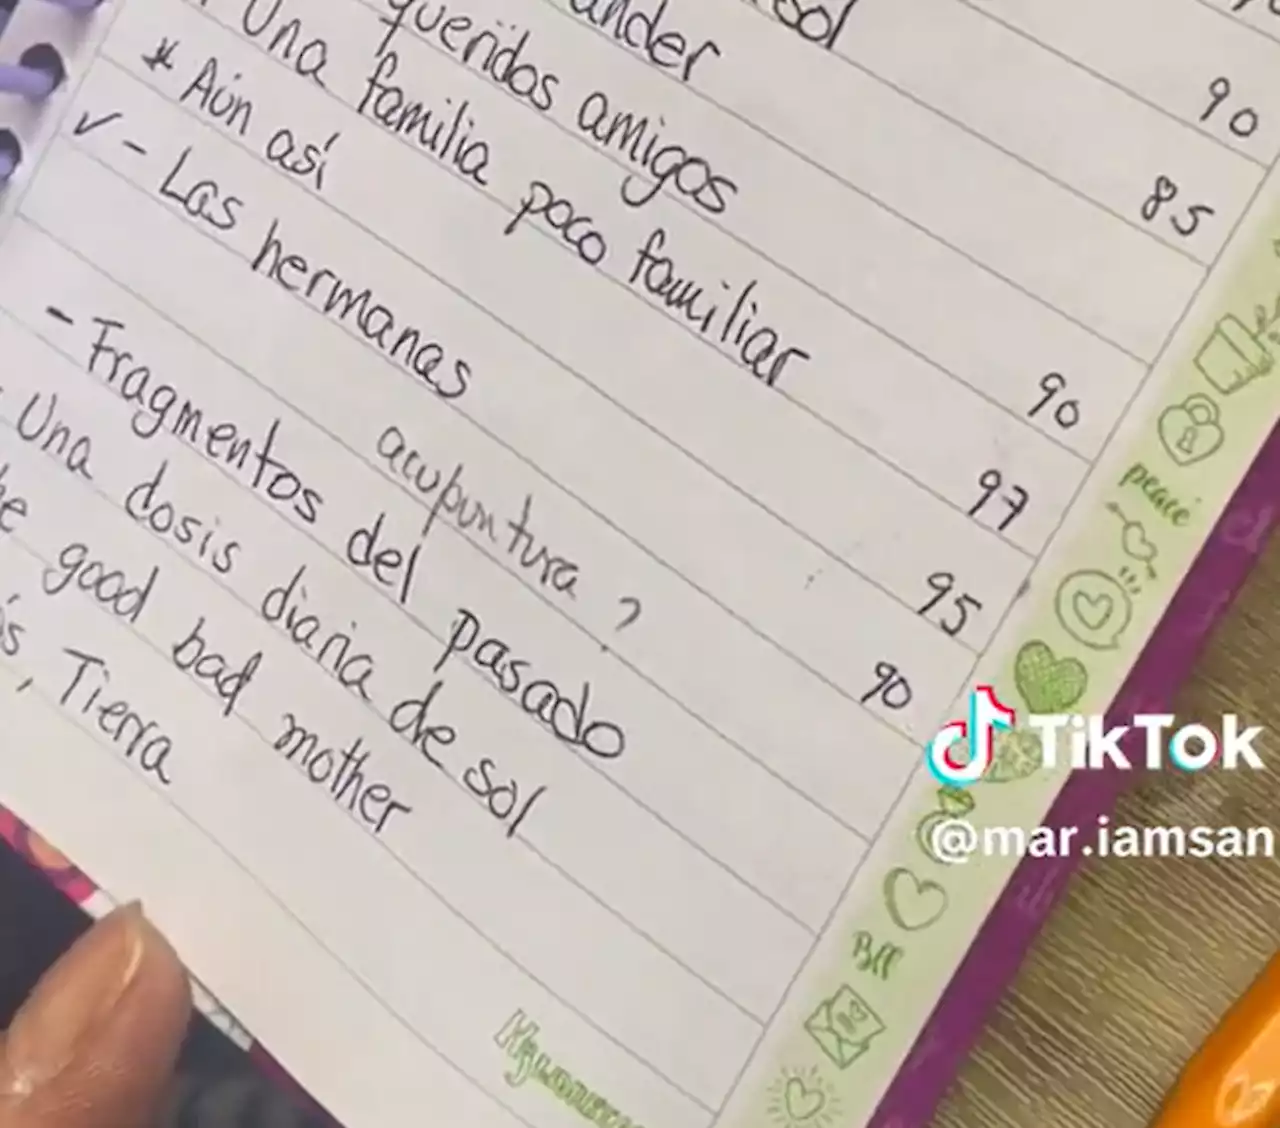 90
sol 85
queridos amigos 90
Una familia poco familiar 97
* Aún así 95
✓ - Las hermanas 90
acupuntura ?
- Fragmentos del pasado
Una dosis diaria de sol
good bad mother
, Tierra
peace
TikTok
@mar.iamsan